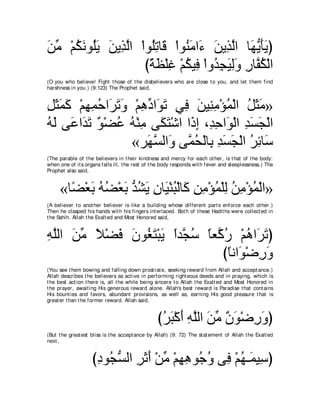 (يَأَيُّهَا الَّذِينَ ءَامَنُواْ قَاتِلُواْ الَّذِينَ يَلُونَكُمْ مِّنَ
الْكُفَّارِ وَلِيَجِدُواْ فِيكُمْ غِلْظَةً)
(O you who believe! Fight those of the disbelievers who are close to you, and let them find
harshness in you.) (9:123) The Prophet said,
«مَثَلُ الْمُؤْمِنِينَ فِي تَوَادِّهِمْ وَتَرَاحُمِهِمْ كَمَثَلِ
الْجَسَدِ الْوَاحِدِ، إِذَا اشْتَكَى مِنْهُ عُضْوٌ تَدَاعَى لَهُ
سَائِرُ الْجَسَدِ بِالْحُمَّى وَالسَّهَر»
(The parable of the believers in their kindness and mercy for each other, is that of the body:
when one of its organs falls ill, the rest of the body responds with fever and sleeplessness.) The
Prophet also said,
«الْمُؤْمِنُ لِلْمُؤْمِنِ كَالْبُنْيَانِ يَشُدُّ بَعْضُهُ بَعْضًا»
(A believer to another believer is like a building whose different parts enforce each other.)
Then he clasped his hands with his fingers interlaced. Both of these Hadiths were collected in
the Sahih. Allah the Exalted and Most Honored said,
(تَرَاهُمْ رُكَّعاً سُجَّداً يَبْتَغُونَ فَضْلاً مِّنَ اللَّهِ
وَرِضْوَاناً)
(You see them bowing and falling down prostrate, seeking reward from Allah and acceptance.)
Allah describes the believers as active in performing righteous deeds and in praying, which is
the best action there is, all the while being sincere to Allah the Exalted and Most Honored in
the prayer, awaiting His generous reward alone. Allah's best reward is Paradise that contains
His bounties and favors, abundant provisions, as well as, earning His good pleasure that is
greater than the former reward. Allah said,
(وَرِضْوَنٌ مِّنَ اللَّهِ أَكْبَرُ)
(But the greatest bliss is the acceptance by Allah) (9: 72) The statement of Allah the Exalted
next,
(سِيمَـهُمْ فِى وُجُوهِهِمْ مِّنْ أَثَرِ السُّجُودِ)